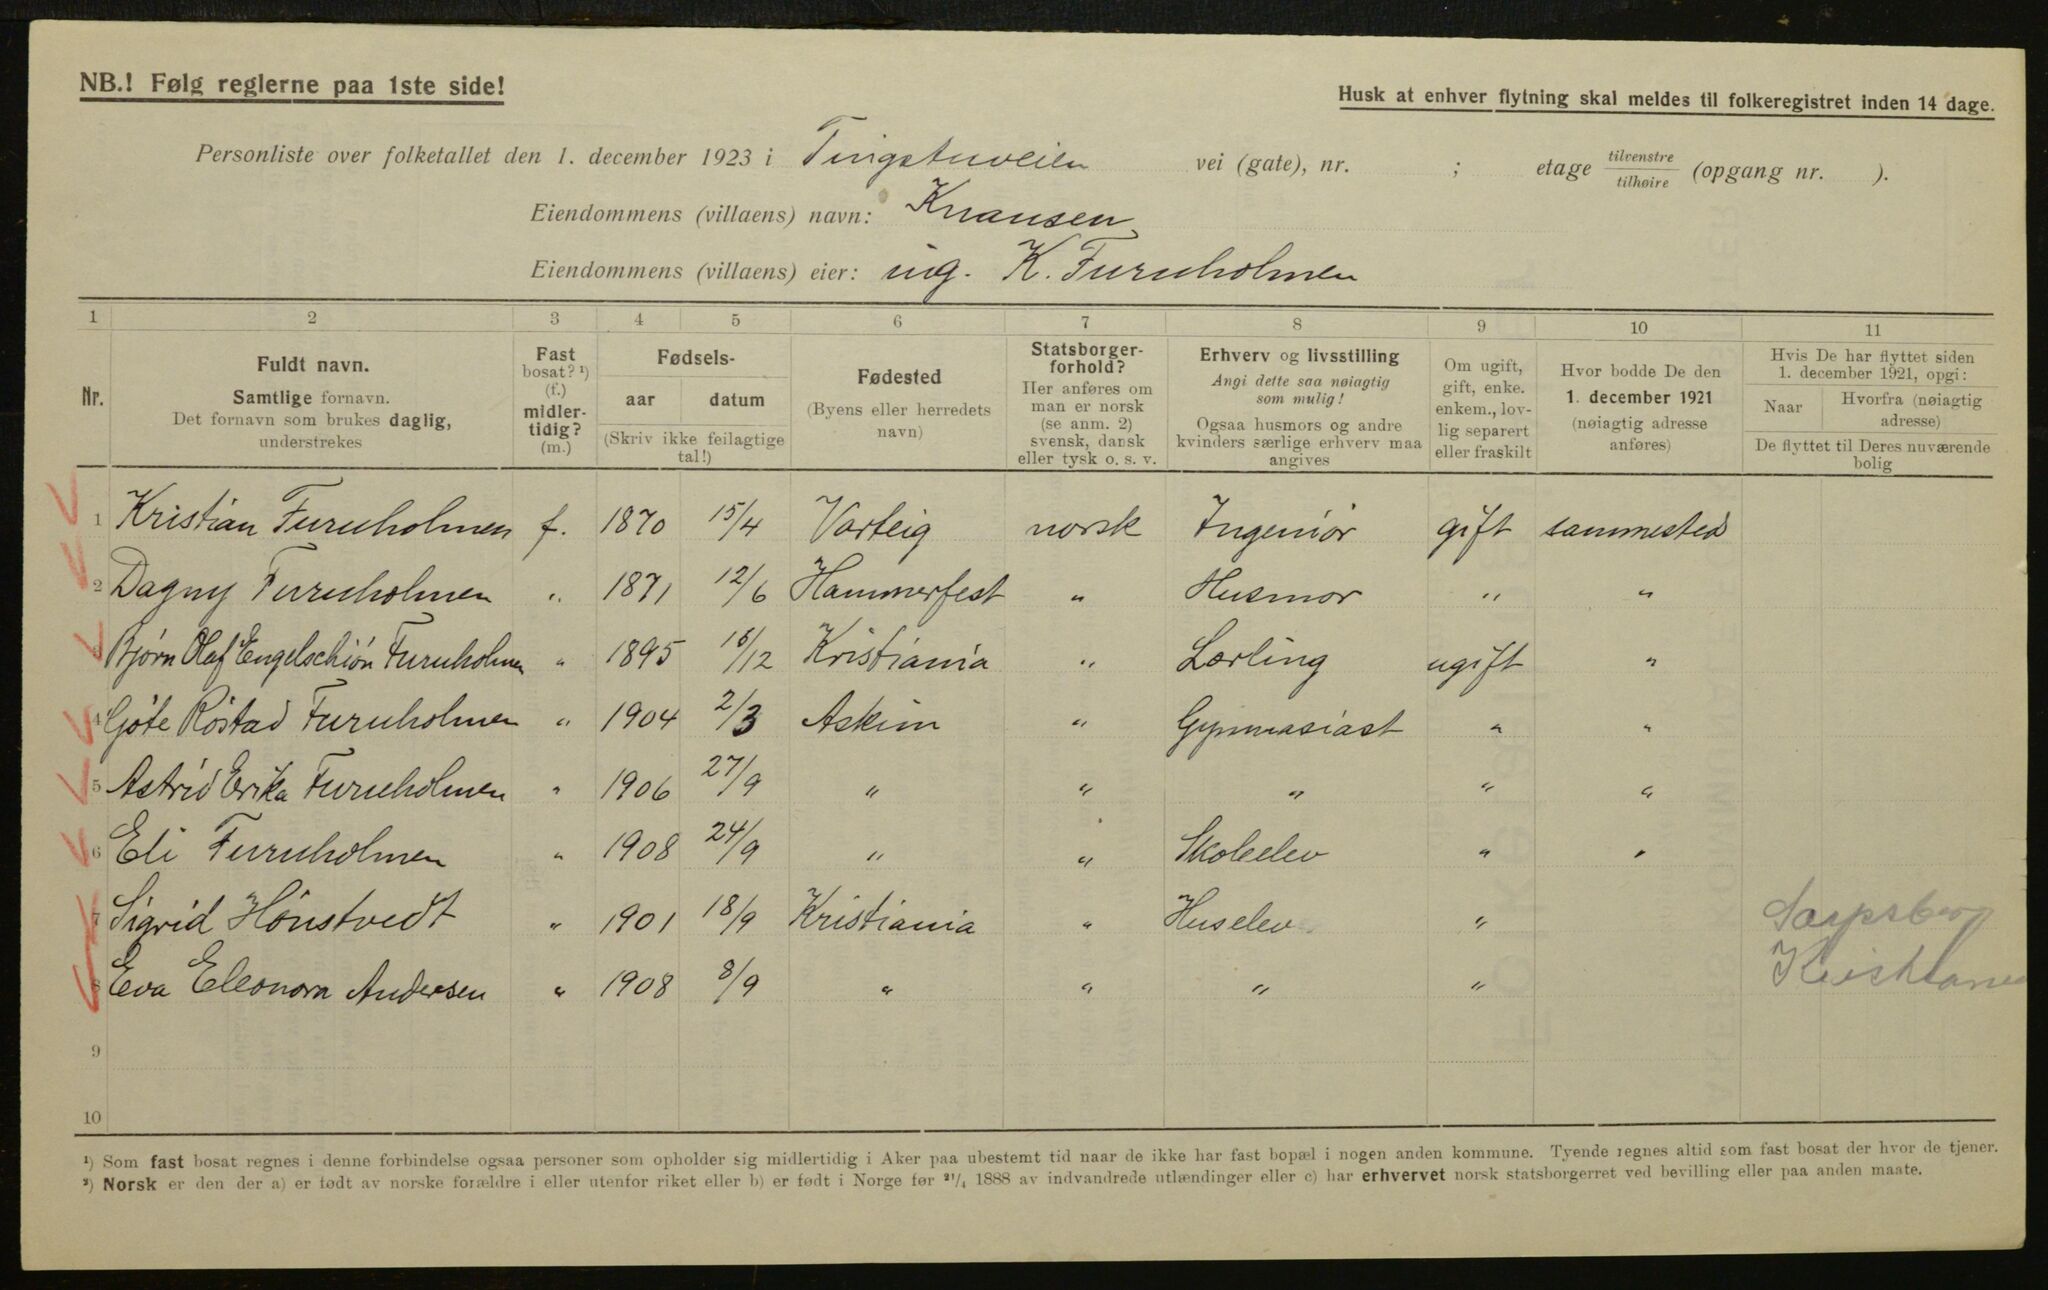 NB.! Følg reglerne paa 1ste side!
Husk at enhver flytning skal meldes til folkeregistret inden 14 dage.
Personliste over folketallet den 1. december 1923 i Tingstuveien vei (gate), nr. ; etage tilvenstre/tilhøire (opgang nr. ).
Eiendommens (villaens) navn: Knausen
Eiendommens (villaens) eier: ing. K. Furuholmen
1 2 3 4 5 6 7 8 9 10 11
Nr.
Fuldt navn.
Samtlige fornavn.
Det fornavn som brukes daglig,
understrekes
Fast
bosat? ¹)
(f.)
midler-
tidig?
(m.)
Fødsels-
aar datum
(Skriv ikke feilagtige
tal!)
Fødested
(Byens eller herredets
navn)
Statsborger-
forhold?
Her anføres om
man er norsk
(se anm. 2)
svensk, dansk
eller tysk o. s. v.
Erhverv og livsstilling
Angi dette saa nøiagtig
som mulig!
Ogsaa husmors og andre
kvinders særlige erhverv maa
angives
Om ugift,
gift, enke.
enkem., lov-
lig separert
eller fraskilt
Hvor bodde De den
1. december 1921
(nøiagtig adresse
anføres)
Hvis De har flyttet siden
1. december 1921, opgi:
Naar
Hvorfra (nøiagtig
adresse)
De flyttet til Deres nuværende
bolig
1 Kristian Furuholmen f. 1870 15/4 Varteig norsk Ingeniør gift sammested
2 Dagny Furuholmen " 1871 12/6 Hammerfest " Husmor " "
3 Bjørn Olaf Engelschiøn Furuholmen " 1895 /12 Kristiania " Lærling ugift "
4 Gøte Røstad Furuholmen " 1904 2/3 Askim " Gymnasiast " "
5 Astrid Erika Furuholmen " 1906 27/9 " " " " "
6 Eli Furuholmen " 1908 24/9 " " Skoleelev " "
7 Sigrid Hønstvedt " 1901 18/9 Kristiania " Huselev " Sarpsborg
8 Eva Eleonora Andersen " 1908 8/9 " " " " Kristiania
9
10
¹) Som fast bosat regnes i denne forbindelse ogsaa personer som opholder sig midlertidig i Aker paa ubestemt tid naar de ikke har fast bopæl i nogen anden kommune. Tyende regnes altid som fast bosat der hvor de tjener.
²) Norsk er den der a) er født av norske forældre i eller utenfor riket eller b) er født i Norge før ²¹/₄ 1888 av indvandrede utlændinger eller c) har erhvervet norsk statsborgerret ved bevilling eller paa anden maate.